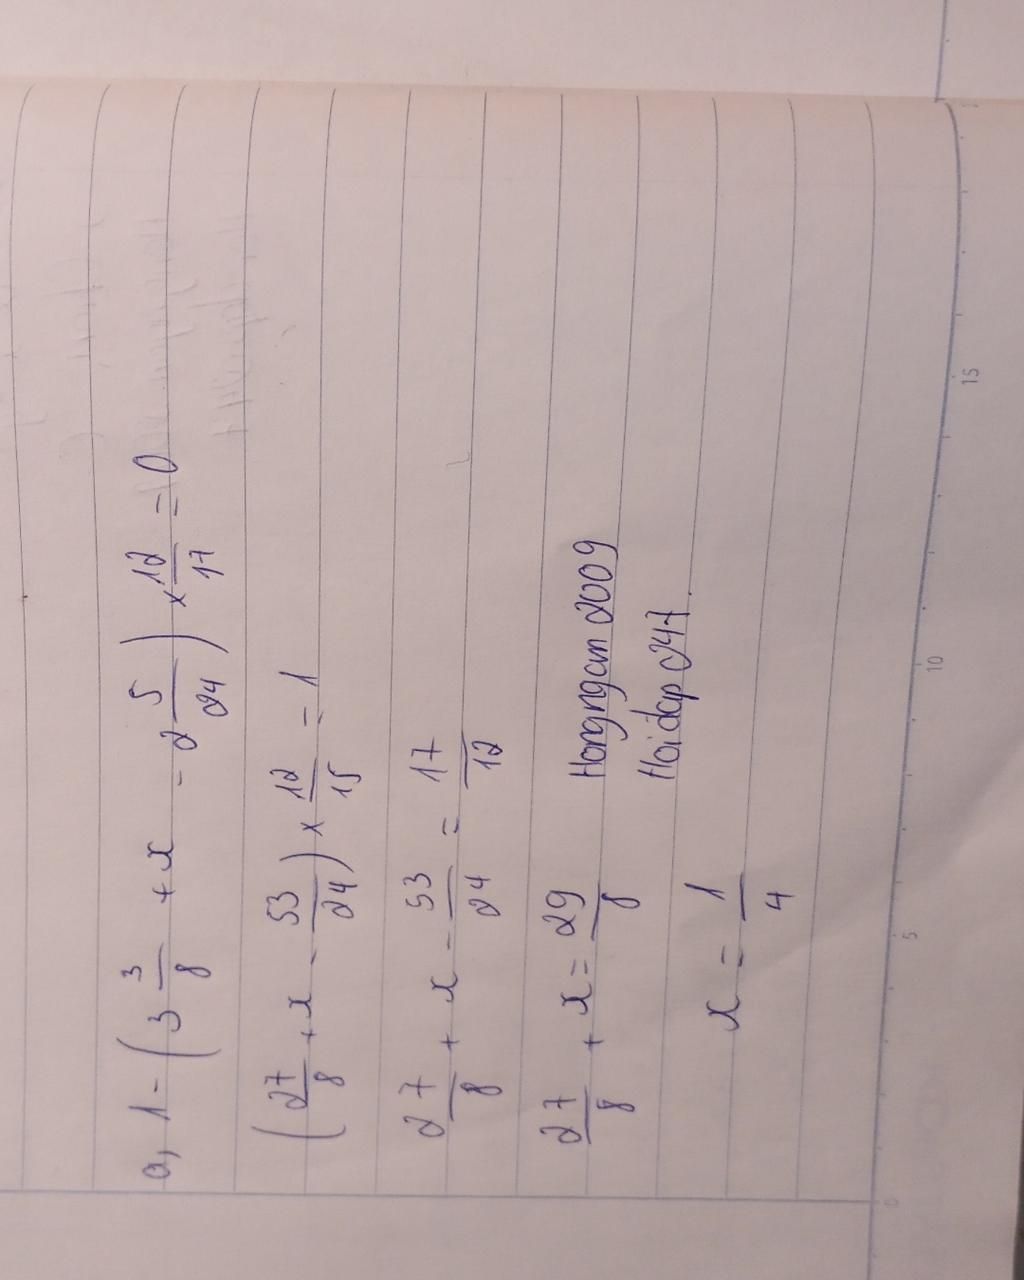 a, 1 - (3 3/8 + x - 2 5/24) × 12/17 = 0
(27/8 + x - 53/24) × 12/15 = 1
27/8 + x - 53/24 = 17/12
27/8 + x = 29/8
Hongngan 2009
Hoidap 247.
x = 1/4
0 5 10 15